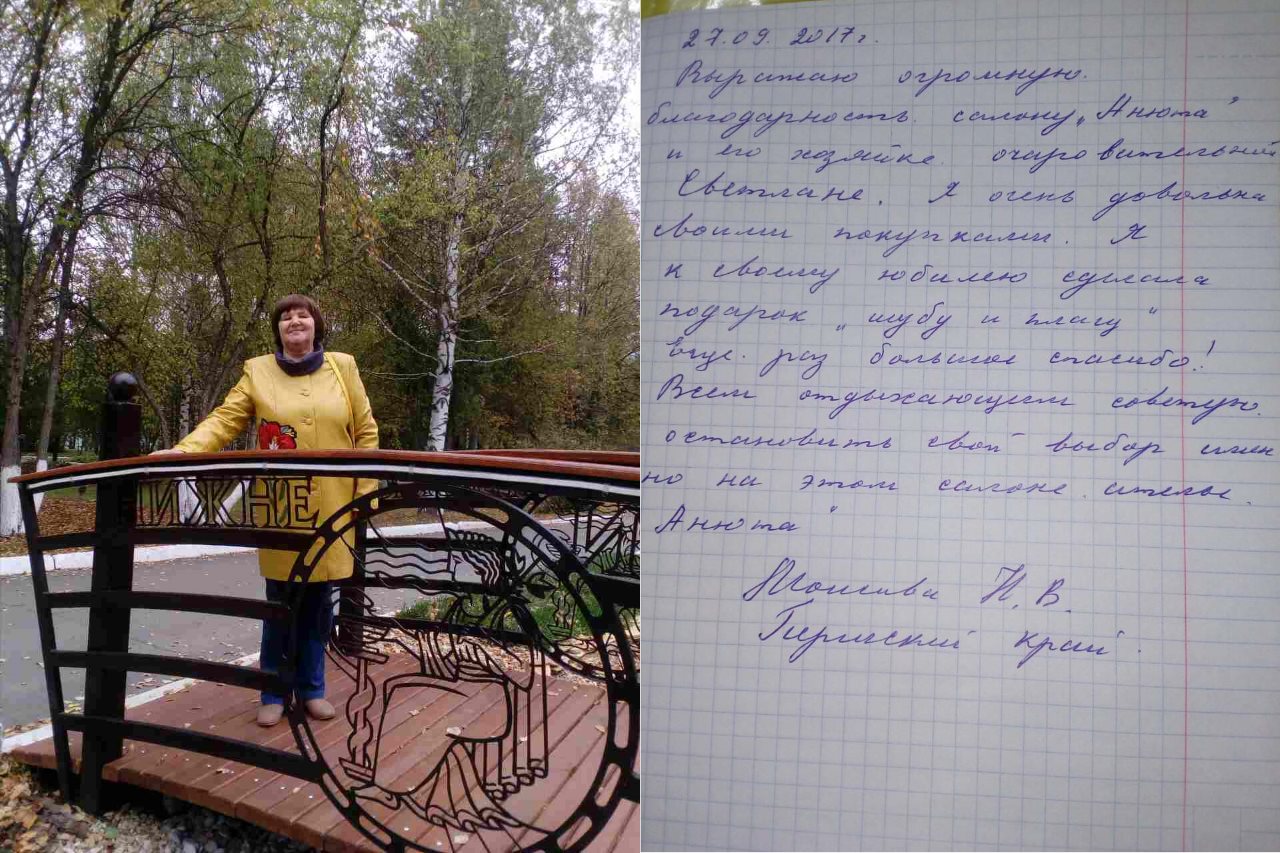 НИЖНЕ
27.09. 2017г.
Выражаю огромную
благодарность салону „Анюта"
и его хозяйке очаровательной
Светлане. Я очень довольна
своими покупками. Я
к своему юбилею сделала
подарок „шубу и плащ"
Еще раз большое спасибо!
Всем отдыхающим советую
остановить свой выбор имен
но на этом салоне ателье
Анюта"
Н. В.
Пермский край.